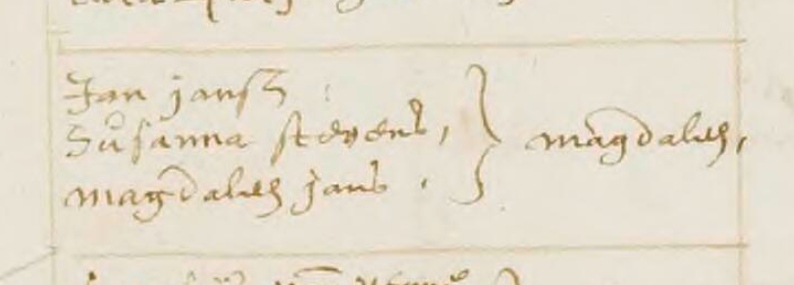 Jan jansz
Susanna stevens,
magdaleen jans.
magdaleen,